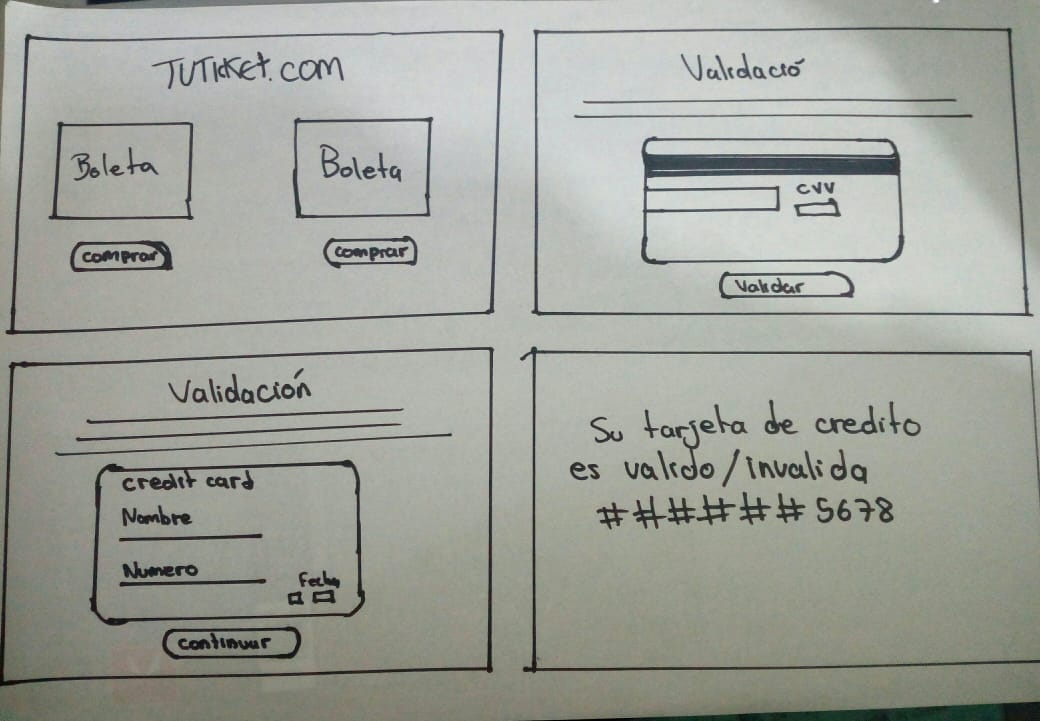 TUTICKET.COM
Boleta
Boleta
comprar
comprar
Validació
CVV
Validar
Validación
credit card
Nombre
Numero
Fecha
continuar
Su tarjeta de credito
es valido/invalida
######5678